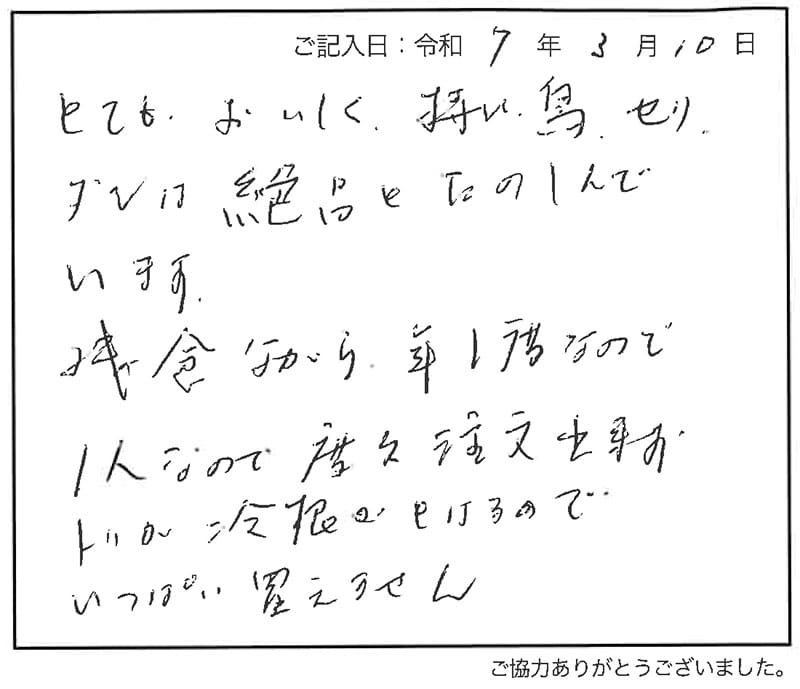 ご記入日：令和 7 年 3 月 10 日
とても おいしく、特に、鳥、セリ、
ダシは 絶品と たのしんで
います。
残念ながら、年1度なので
1人なので 度々 注文出来ず
トリが 冷根が とけるので
いっぱい 買えません
ご協力ありがとうございました。